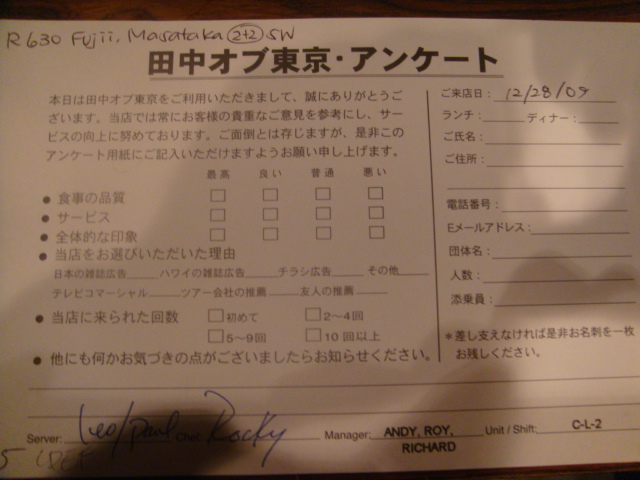 R630 Fujii, Masataka 2+2 SW
田中オブ東京・アンケート
本日は田中オブ東京をご利用いただきまして、誠にありがとうござ
います。当店では常にお客様の貴重なご意見を参考にし、サー
ビスの向上に努めております。ご面倒とは存じますが、是非この
アンケート用紙にご記入いただけますようお願い申し上げます。
最高 良い 普通 悪い
● 食事の品質
● サービス
● 全体的な印象
● 当店をお選びいただいた理由
日本の雑誌広告 ハワイの雑誌広告 チラシ広告 その他
テレビコマーシャル ツアー会社の推薦 友人の推薦
● 当店に来られた回数 初めて 2〜4回
5〜9回 10回以上
● 他にも何かお気づきの点がございましたらお知らせください。
ご来店日: 12/28/09
ランチ: ディナー:
ご氏名:
ご住所:
電話番号:
Eメールアドレス:
団体名:
人数:
添乗員:
*差し支えなければ是非お名刺を一枚
お残しください。
Server: Leo/Paul Chef: Rocky Manager: ANDY, ROY, RICHARD Unit / Shift: C-L-2